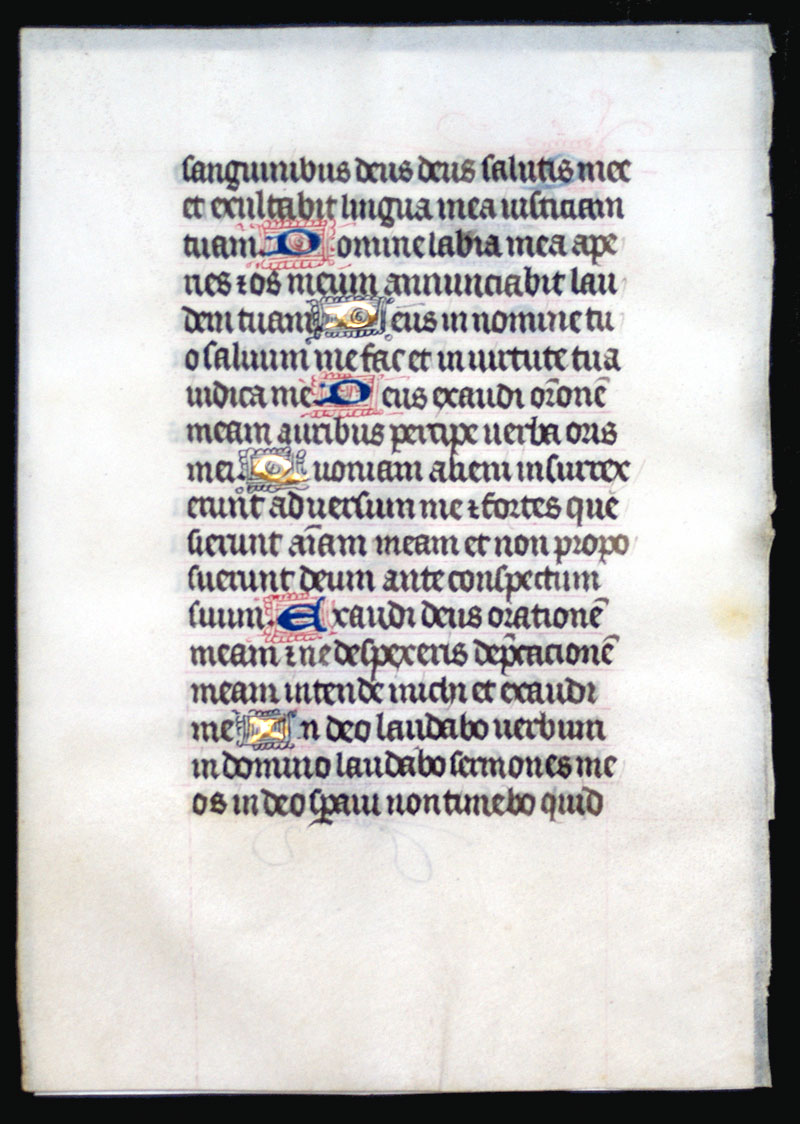 sanguinibus deus deus salutis mee
et exultabit lingua mea iusticiam
tuam. Domine labia mea ape
ries ⁊ os meum annunciabit lau
dem tuam. Deus in nomine tu
o saluum me fac et in uirtute tua
iudica me. Deus exaudi or̄onē
meam auribus percipe uerba oris
mei. Quoniam alieni insurrex
erunt aduersum me ⁊ fortes que
sierunt aīam meam et non propo
suerunt deum ante conspectum
suum. Exaudi deus orationē
meam ⁊ ne despexeris dep̄cacionē
meam intende michi et exaudi
me In deo laudabo uerbum
in domino laudabo sermones me
os in deo sꝑaui non timebo quid